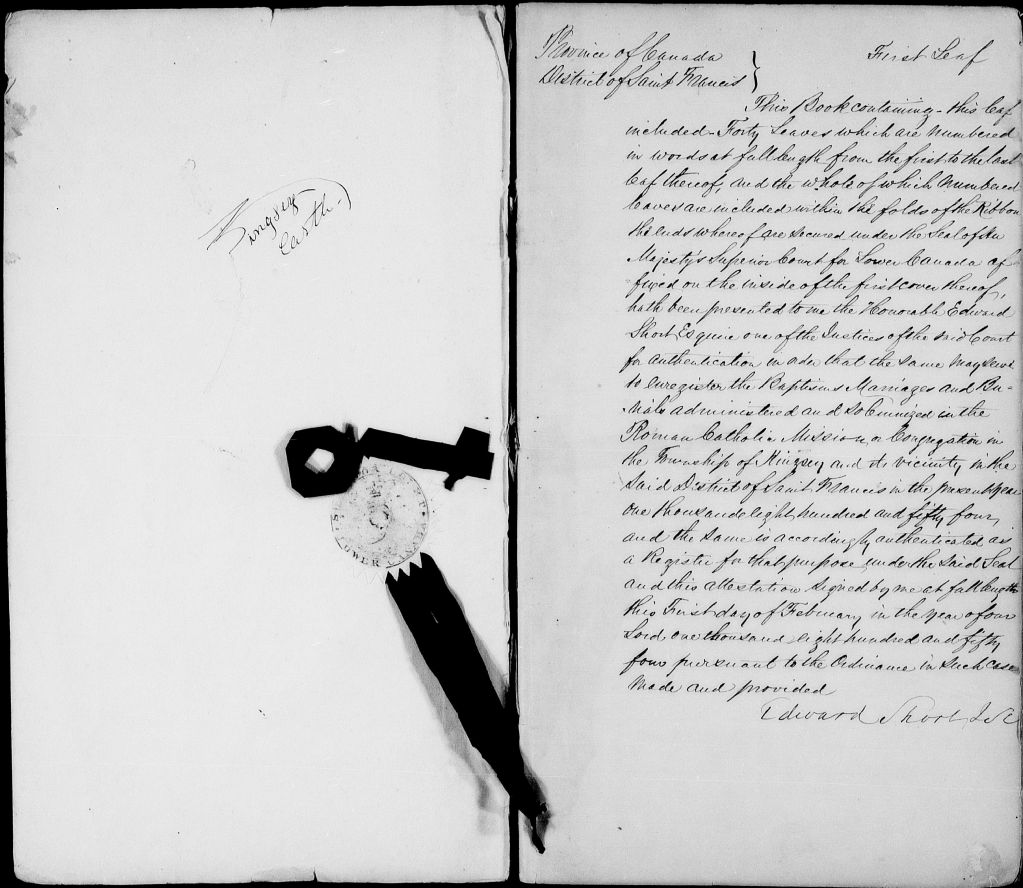 Kingsey
Earth.
Province of Canada
District of Saint Francis
First Leaf
This Book containing - this leaf
included - Forty Leaves which are numbered
in words at full length from the first to the last
leaf thereof, and the whole of which numbered
leaves are included within the folds of the Ribbon
the ends whereof are secured under the Seal of Her
Majesty's Superior Court for Lower Canada af-
fixed on the inside of the first cover thereof,
hath been presented to me the Honorable Edward
Short Esquire one of the Justices of the said Court
for authentication in order that the same may serve
to enregister the Baptisms Marriages and Bu-
rials administered and solemnized in the
Roman Catholic Mission or Congregation in
the Township of Kingsey and its vicinity in the
said District of Saint Francis in the present year
one thousand eight hundred and fifty four,
and the same is accordingly authenticated as
a Register for that purpose under the said Seal
and this attestation signed by me at full length
this First day of February in the year of our
Lord one thousand eight hundred and fifty
four pursuant to the Ordinance in such case
made and provided
Edward Short J.S.C.
LOWER CANADA